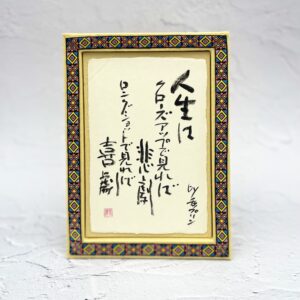 人生は
クローズアップで見れば
悲劇
ロングショットで見れば
喜劇
by チャップリン